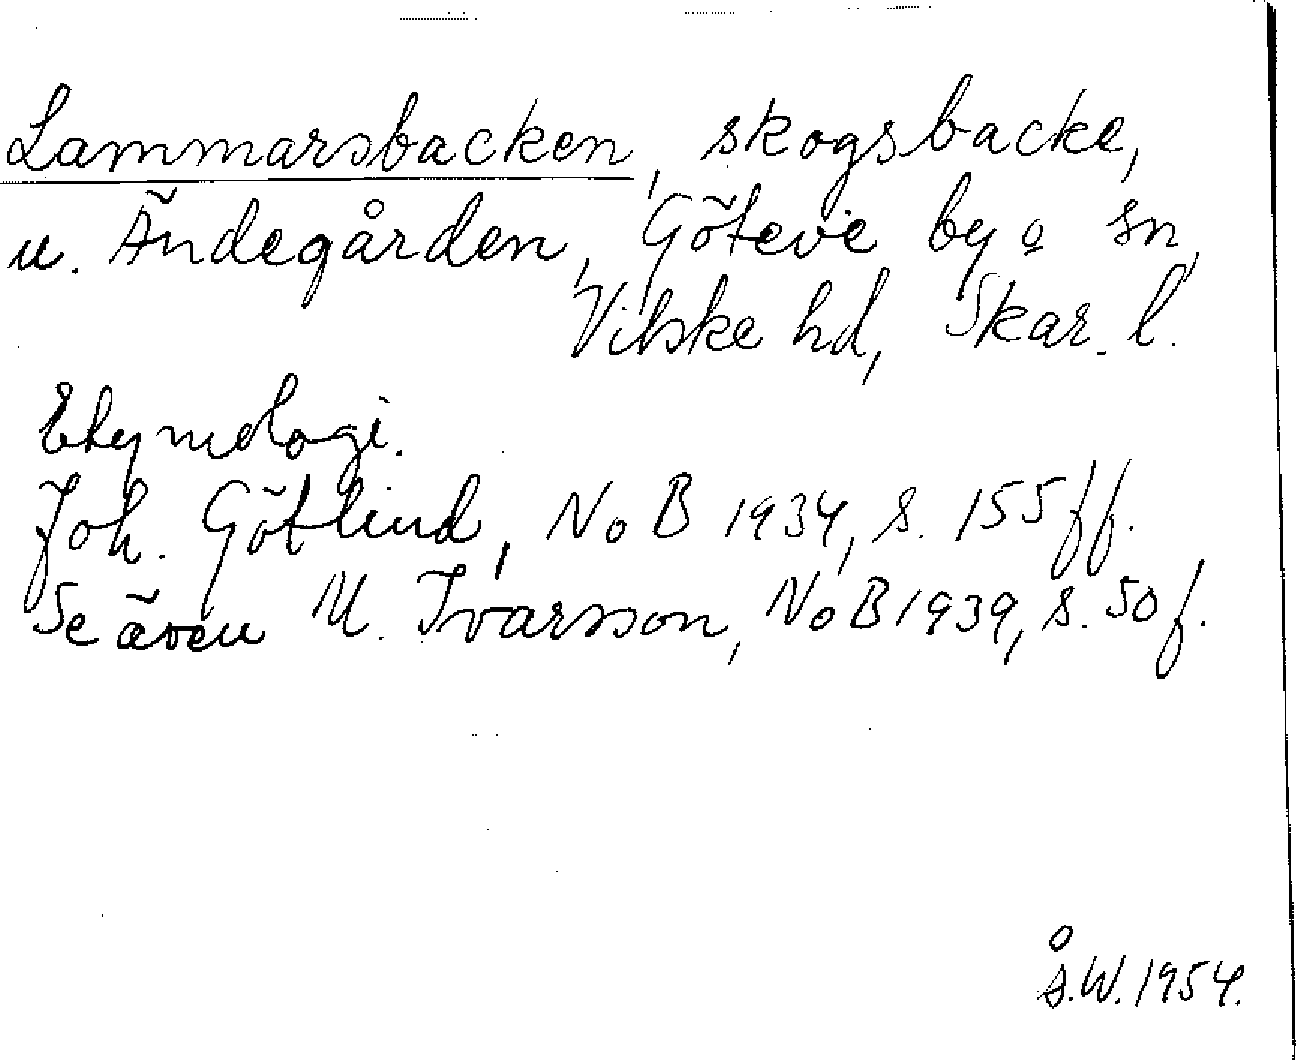 Lammarsbacken, skogsbacke,
u. Ändegården, Göteve by o sn,
Vilske hd, Skar. l.
Etymologi.
Joh. Götlind, NoB 1934, s. 155 ff.
Se även M. Ivarsson, NoB 1939, s. 50 f.
Å.W. 1954.